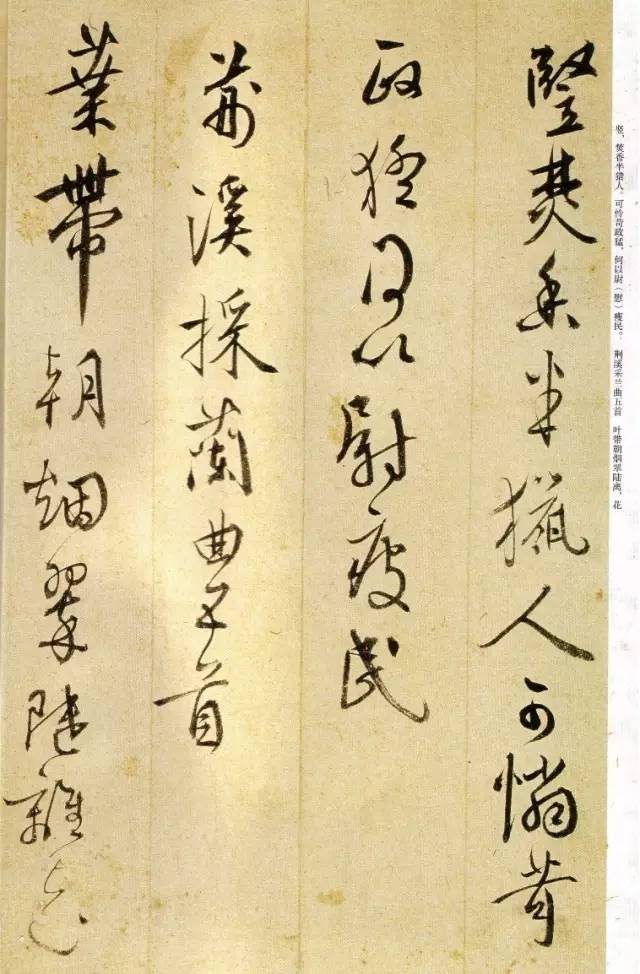 豎焚香半獵人可憐苛
政猛何以尉瘦民
荊溪採蘭曲五首
葉帶朝烟翠陸離花
竖，焚香半猎人。可怜苛政猛，何以尉（慰）瘦民。 荆溪采兰曲五首 叶带朝烟翠陆离，花